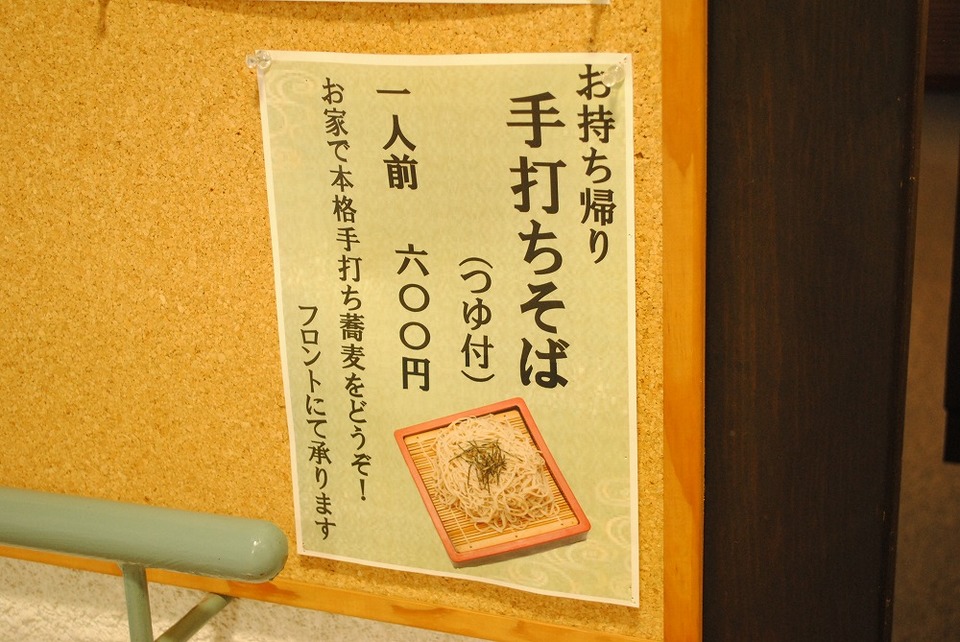 お持ち帰り
手打ちそば
（つゆ付）
一人前　六〇〇円
お家で本格手打ち蕎麦をどうぞ！
フロントにて承ります